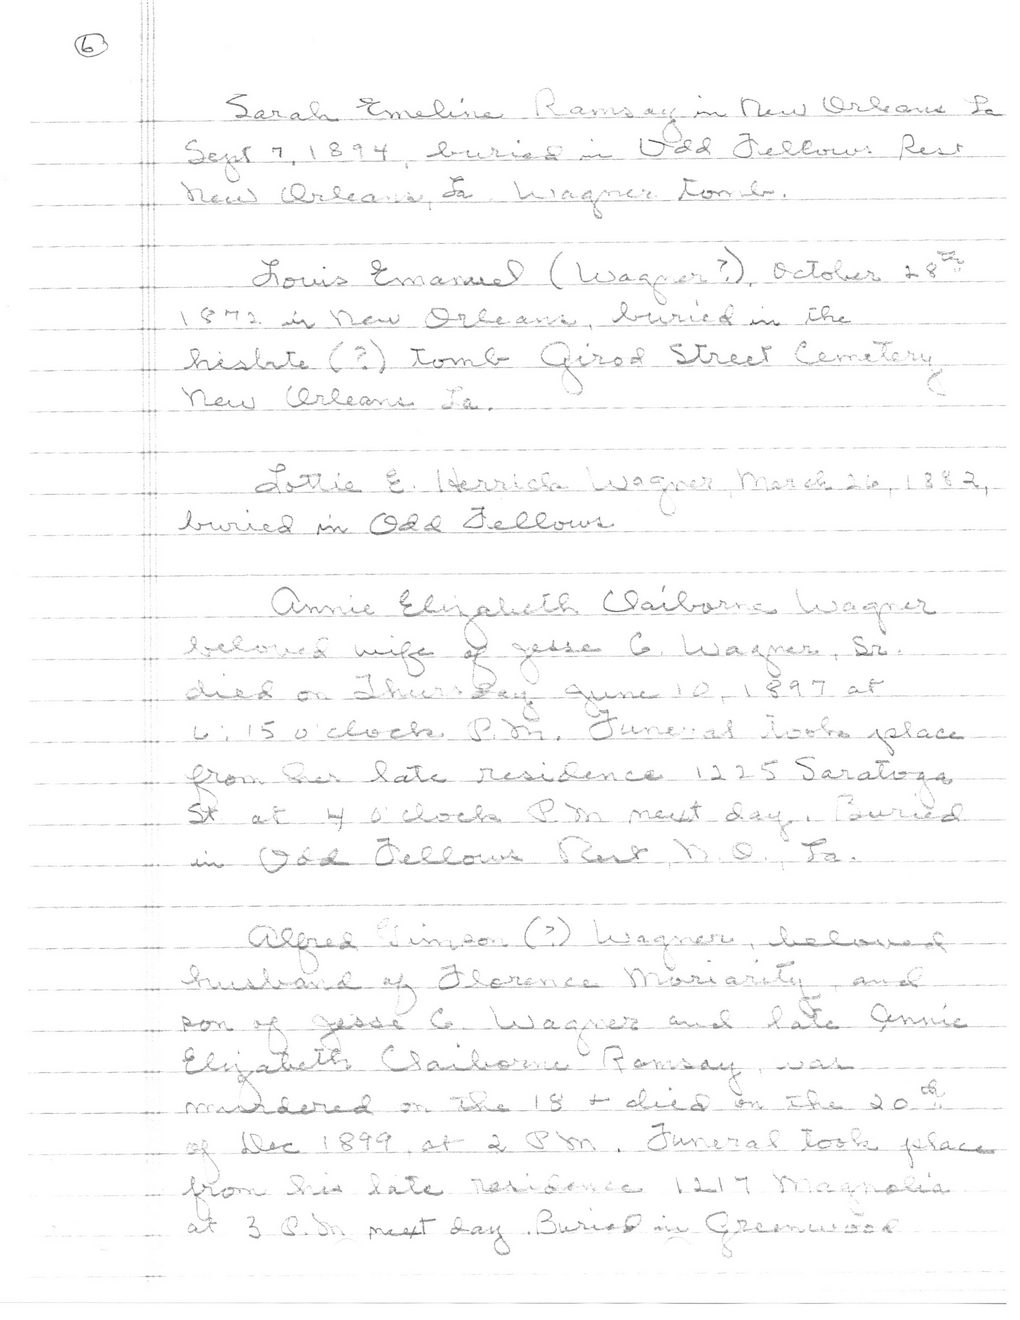 6
Sarah Emeline Ramsay in New Orleans La
Sept 7, 1894, buried in Odd Fellows Rest
New Orleans, La. Wagner tomb.
Louis Emanuel (Wagner?), October 28th
1872 in New Orleans, buried in the
hislate (?) tomb Girod Street Cemetery
New Orleans La.
Lottie E. Herrick Wagner, March 26, 1882,
buried in Odd Fellows
Annie Elizabeth Claiborne Wagner
beloved wife of Jesse C. Wagner, Sr.
died on Thursday June 10, 1897 at
6:15 o'clock P.M. Funeral took place
from her late residence 1225 Saratoga
St at 4 o'clock P.M next day. Buried
in Odd Fellows Rest, N.O., La.
Alfred Timson (?) Wagner, beloved
husband of Florence Moriarity and
son of Jesse C. Wagner and late Annie
Elizabeth Claiborne Ramsay, was
murdered on the 18 + died on the 20th
of Dec 1899 at 2 P.M. Funeral took place
from his late residence 1217 Magnolia
at 3 P.M next day. Buried in Greenwood